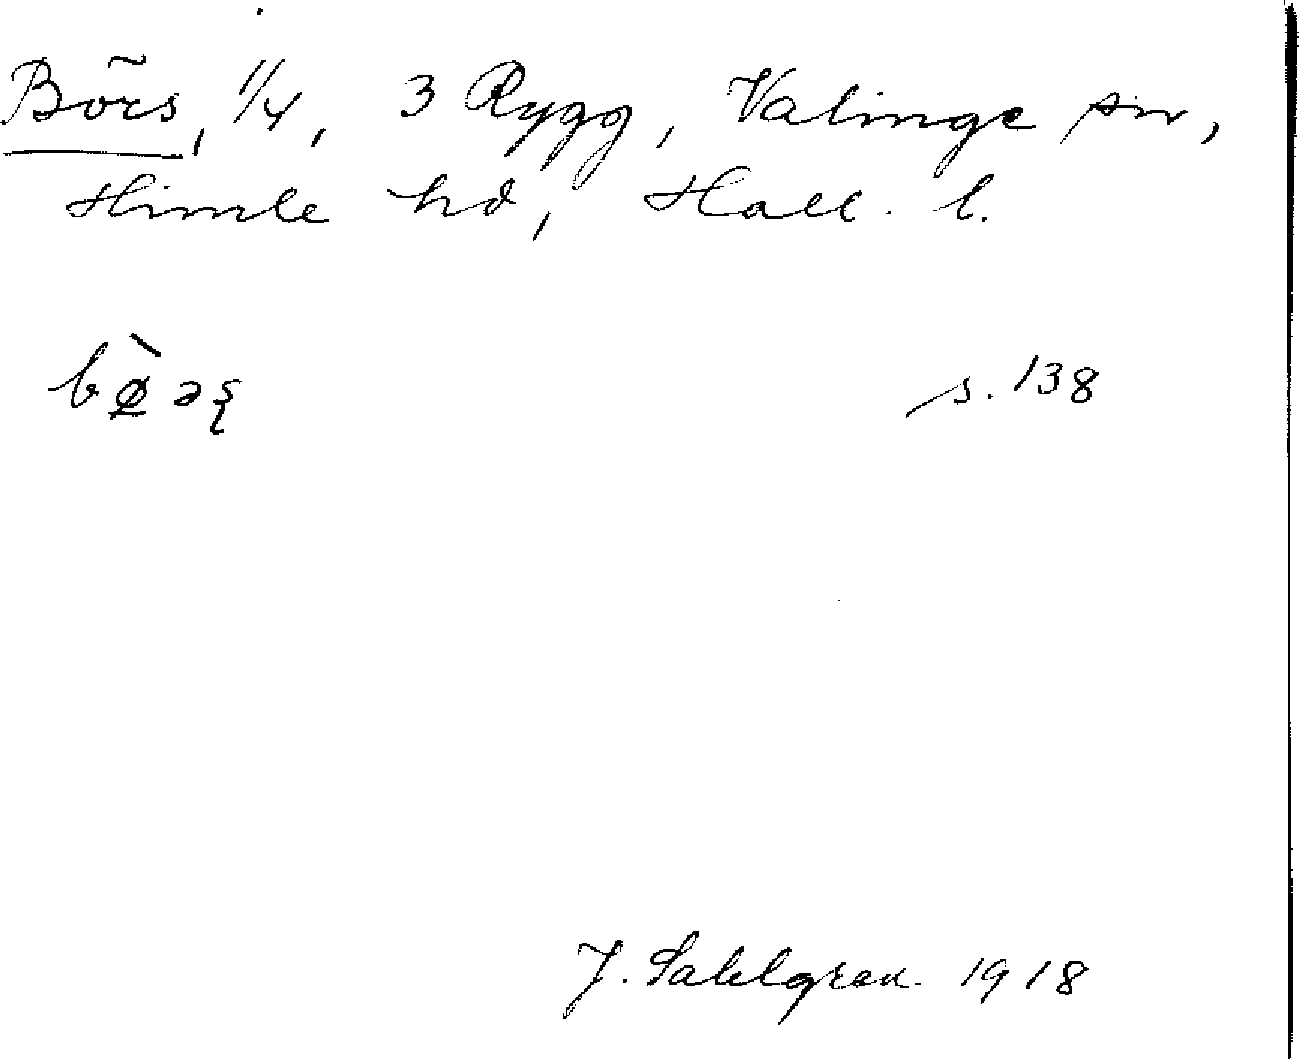 Börs, 1/4, 3 Rygg, Valinge sn,
Himle hd, Hall. l.
bø̀əş s. 138
J. Sahlgren. 1918